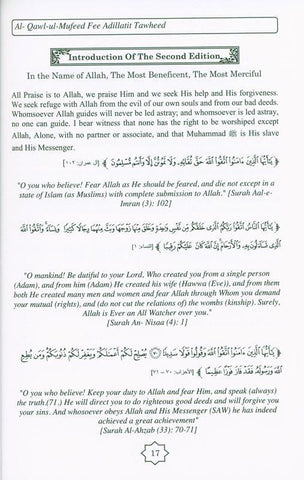 Al- Qawl-ul-Mufeed Fee Adillatit Tawheed
Introduction Of The Second Edition
In the Name of Allah, The Most Beneficent, The Most Merciful
All Praise is to Allah, we praise Him and we seek His help and His forgiveness.
We seek refuge with Allah from the evil of our own souls and from our bad deeds.
Whomsoever Allah guides will never be led astray; and whomsoever is led astray,
no one can guide. I bear witness that none has the right to be worshiped except
Allah, Alone, with no partner or associate, and that Muhammad ﷺ is His slave
and His Messenger.
﴿ يَٰٓأَيُّهَا ٱلَّذِينَ ءَامَنُوا۟ ٱتَّقُوا۟ ٱللَّهَ حَقَّ تُقَاتِهِۦ وَلَا تَمُوتُنَّ إِلَّا وَأَنتُم مُّسْلِمُونَ ﴾ [آل عمران: ١٠٢]
"O you who believe! Fear Allah as He should be feared, and die not except in a
state of Islam (as Muslims) with complete submission to Allah." [Surah Aal-e-
Imran (3): 102]
﴿ يَٰٓأَيُّهَا ٱلنَّاسُ ٱتَّقُوا۟ رَبَّكُمُ ٱلَّذِى خَلَقَكُم مِّن نَّفْسٍ وَٰحِدَةٍ وَخَلَقَ مِنْهَا زَوْجَهَا وَبَثَّ مِنْهُمَا رِجَالًا كَثِيرًا وَنِسَآءً ۚ وَٱتَّقُوا۟ ٱللَّهَ
ٱلَّذِى تَسَآءَلُونَ بِهِۦ وَٱلْأَرْحَامَ ۚ إِنَّ ٱللَّهَ كَانَ عَلَيْكُمْ رَقِيبًا ﴾ [النساء: ١]
"O mankind! Be dutiful to your Lord, Who created you from a single person
(Adam), and from him (Adam) He created his wife (Hawwa (Eve)), and from them
both He created many men and women and fear Allah through Whom you demand
your mutual (rights), and (do not cut the relations of) the wombs (kinship). Surely,
Allah is Ever an All Watcher over you."
[Surah An- Nisaa (4): 1]
﴿ يَٰٓأَيُّهَا ٱلَّذِينَ ءَامَنُوا۟ ٱتَّقُوا۟ ٱللَّهَ وَقُولُوا۟ قَوْلًا سَدِيدًا ﴿٧٠﴾ يُصْلِحْ لَكُمْ أَعْمَٰلَكُمْ وَيَغْفِرْ لَكُمْ ذُنُوبَكُمْ ۗ وَمَن يُطِعِ
ٱللَّهَ وَرَسُولَهُۥ فَقَدْ فَازَ فَوْزًا عَظِيمًا ﴾ [الأحزاب: ٧٠ - ٧١]
"O you who believe! Keep your duty to Allah and fear Him, and speak (always)
the truth.(71.) He will direct you to do righteous good deeds and will forgive you
your sins. And whosoever obeys Allah and His Messenger (SAW) he has indeed
achieved a great achievement"
[Surah Al-Ahzab (33): 70-71]
17